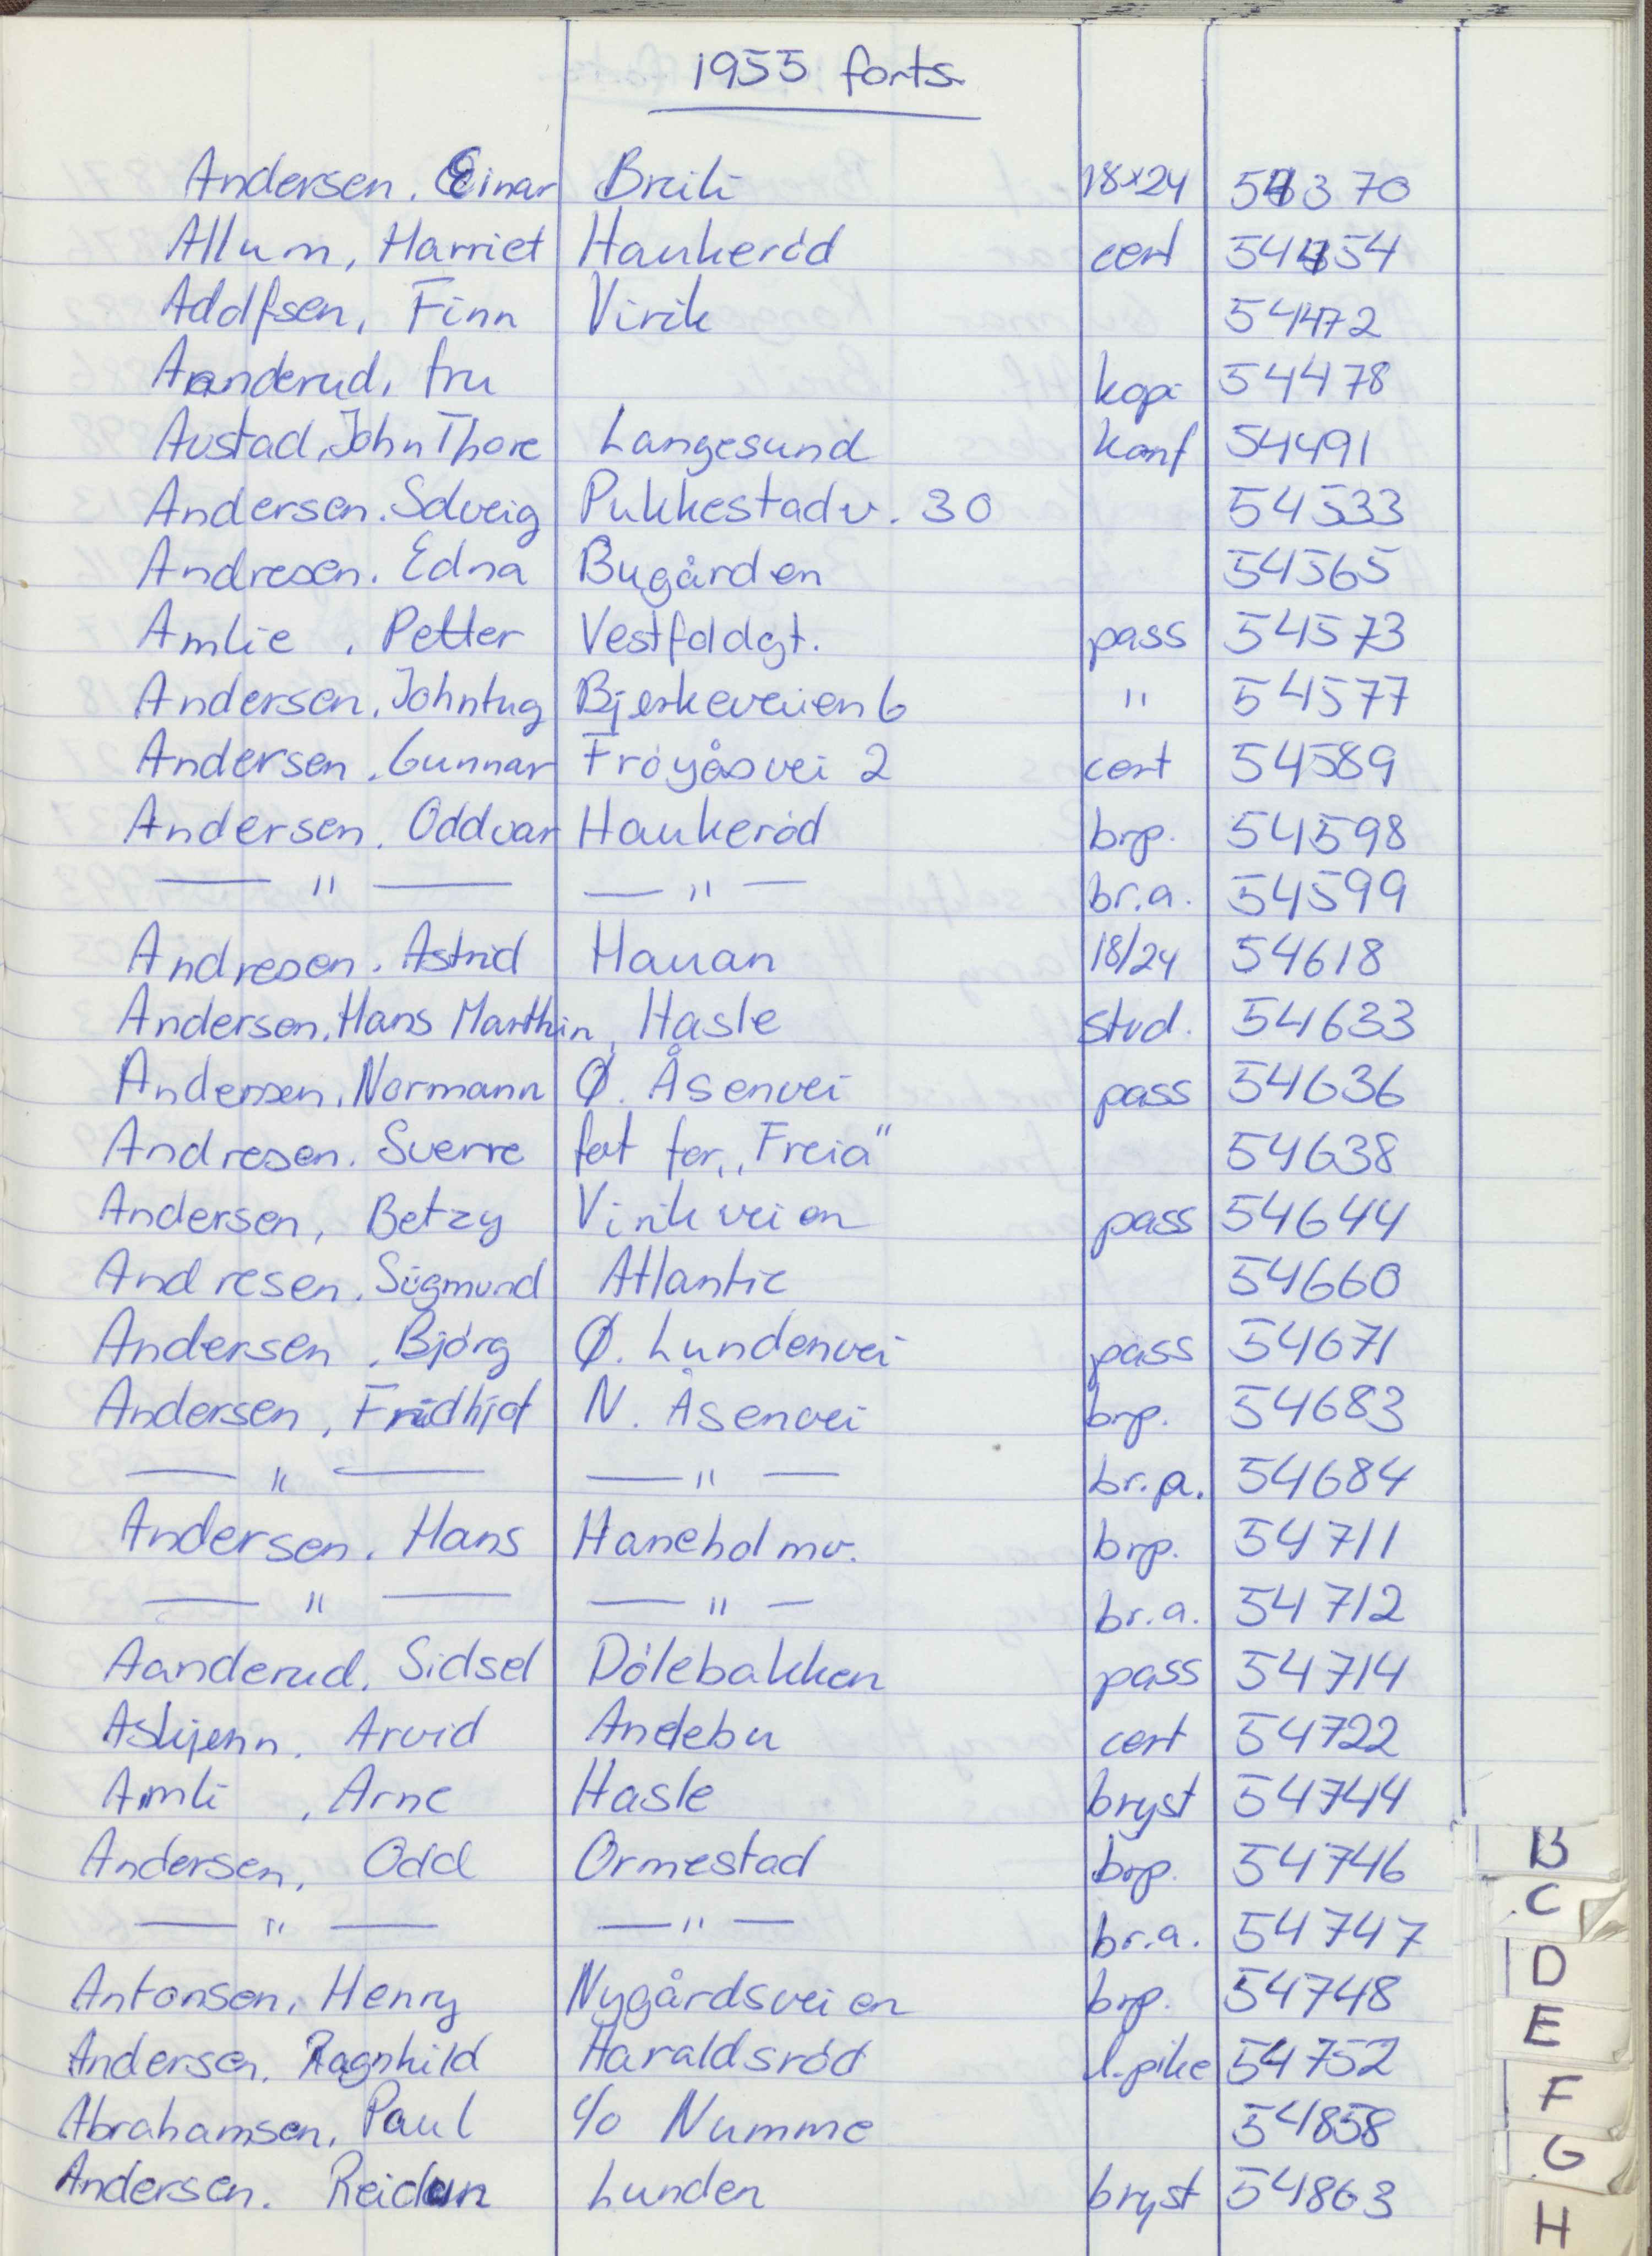 1955 forts.
Andersen, Einar Breili 18x24 54370
Allum, Harriet Haukeröd cert 54454
Adolfsen, Finn Virik 54472
Aanderud, fru kopi 54478
Austad, John Thore Langesund konf 54491
Andersen. Solveig Pukkestadv. 30 54533
Andresen. Edna Bugården 54565
Amlie, Petter Vestfoldgt. pass 54573
Andersen, John Bjerkeveien 6 " 54577
Andersen, Gunnar Fröyåsvei 2 cert 54589
Andersen, Oddvar Haukeröd brp. 54598
— " — — " — br.a. 54599
Andresen. Astrid Hauan 18/24 54618
Andersen, Hans Marthin, Hasle stud. 54633
Andersen, Normann Ø. Åsenvei pass 54636
Andresen. Sverre fat for „Freia" 54638
Andersen, Betzy Virikveien pass 54644
Andresen, Sigmund Atlantic 54660
Andersen, Björg Ø. Lundenvei pass 54671
Andersen, Fridhjof N. Åsenvei brp. 54683
— " — — " — br.a. 54684
Andersen, Hans Haneholmv. brp. 54711
— " — — " — br.a. 54712
Aanderud, Sidsel Dölebakken pass 54714
Askjenn, Arvid Andebu cert 54722
Amli, Arne Hasle bryst 54744
Andersen, Odd Ormestad brp. 54746
— " — — " — br.a. 54747
Antonsen, Henry Nygårdsveien brp. 54748
Andersen. Ragnhild Haraldsröd l.pike 54752
Abrahamsen, Paul c/o Numme 54858
Andersen. Reidun Lunden bryst 54863
B
C
D
E
F
G
H